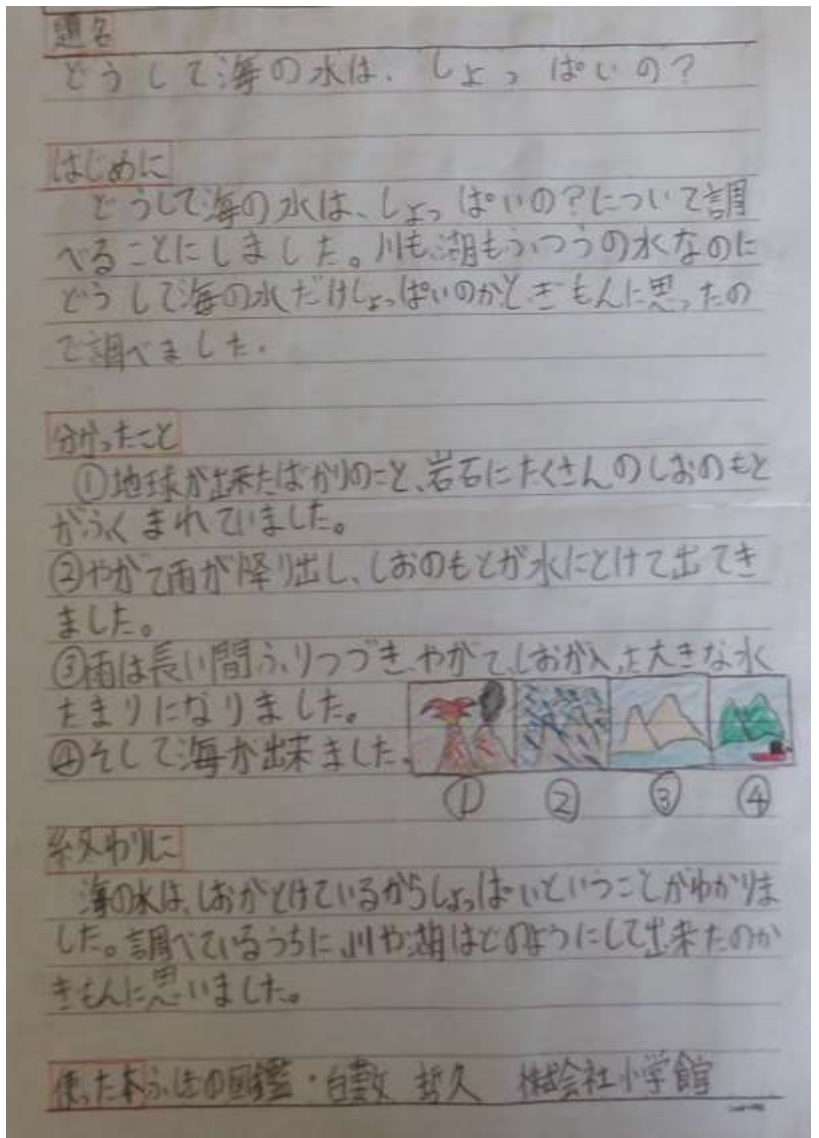 題名
どうして海の水は、しょっぱいの?
はじめに
どうして海の水は、しょっぱいの?について調
べることにしました。川も湖もふつうの水なのに
どうして海の水だけしょっぱいのかと、ぎもんに思ったの
で調べました。
分かったこと
①地球が出来たばかりのこと、岩石にたくさんのしおのもと
がふくまれていました。
②やがて雨が降り出し、しおのもとが水にとけて出てき
ました。
③雨は長い間ふりつづき、やがて、しおが入った大きな水
たまりになりました。
④そして海が出来ました。
① ② ③ ④
終わりに
海の水は、しおがとけているからしょっぱいということがわかりま
した。調べているうちに川や湖はどのようにして出来たのか
ぎもんに思いました。
使った本 ふしぎの図鑑・白數 哲久 株式会社小学館